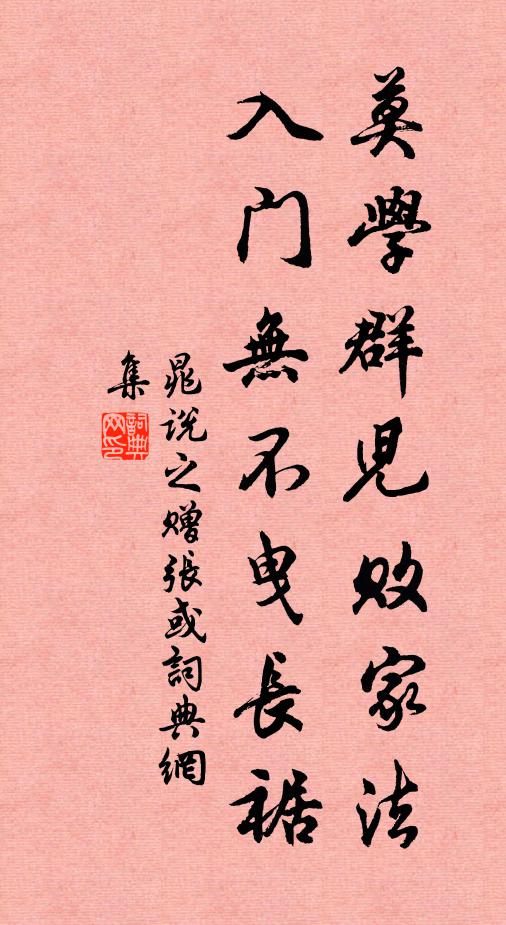 莫學群児敗家法
入门無不曳長裾
晁說之贈張或詞典網
集
詞典
网印